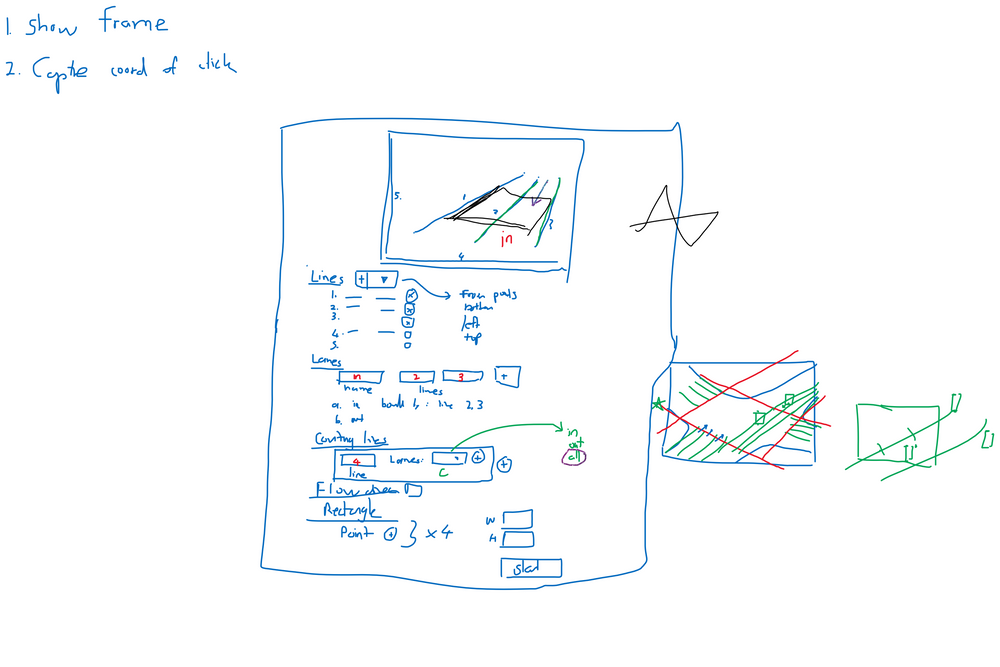 1. Show Frame
2. Captre coord of click
5.
1
2
3
in
4
Lines + ▼
1.
2.
3.
4.
5.
From points
bottom
left
top
Lanes
in 2 3 +
name lines
a. in bound by : line 2,3
b. out
Counting lines
4 Lanes: +
line C
+
in
out
all
Flow
Rectangle
Point + } x 4
W
H
start